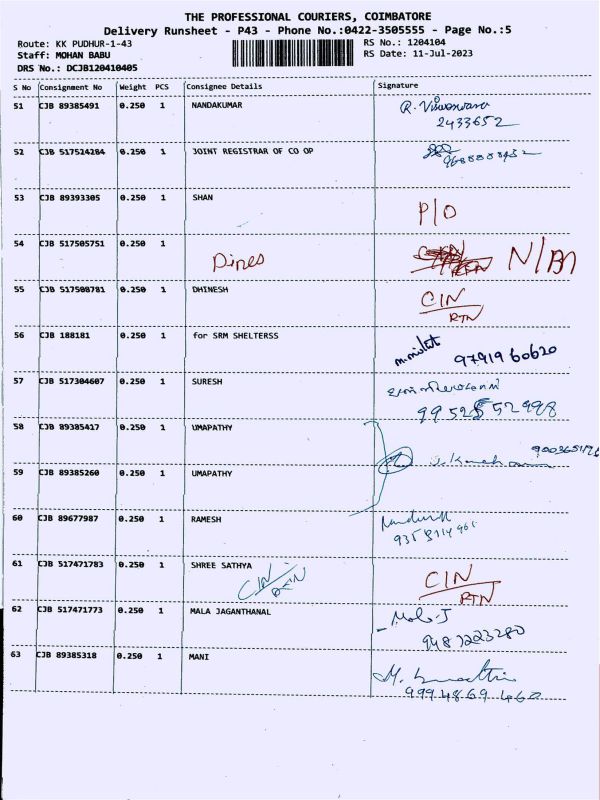 THE PROFESSIONAL COURIERS, COIMBATORE
Delivery Runsheet - P43 - Phone No.:0422-3505555 - Page No.:5
Route: KK PUDHUR-1-43 RS No.: 1204104
Staff: MOHAN BABU RS Date: 11-Jul-2023
DRS No.: DCJB120410405
S No Consignment No Weight PCS Consignee Details Signature
51 CJB 89385491 0.250 1 NANDAKUMAR R.
2433652
52 CJB 517524284 0.250 1 JOINT REGISTRAR OF CO OP
53 CJB 89393305 0.250 1 SHAN P/O
54 CJB 517505751 0.250 1 Dines N/Bn
55 CJB 517508781 0.250 1 DHINESH CIN
RTN
56 CJB 188181 0.250 1 for SRM SHELTERSS 9791960620
57 CJB 517304607 0.250 1 SURESH
9952552998
58 CJB 89385417 0.250 1 UMAPATHY
59 CJB 89385260 0.250 1 UMAPATHY
60 CJB 89677987 0.250 1 RAMESH
61 CJB 517471783 0.250 1 SHREE SATHYA CIN
RTN
CIN
RTN
62 CJB 517471773 0.250 1 MALA JAGANTHANAL Mala-J
9487223280
63 CJB 89385318 0.250 1 MANI M.
9994869460